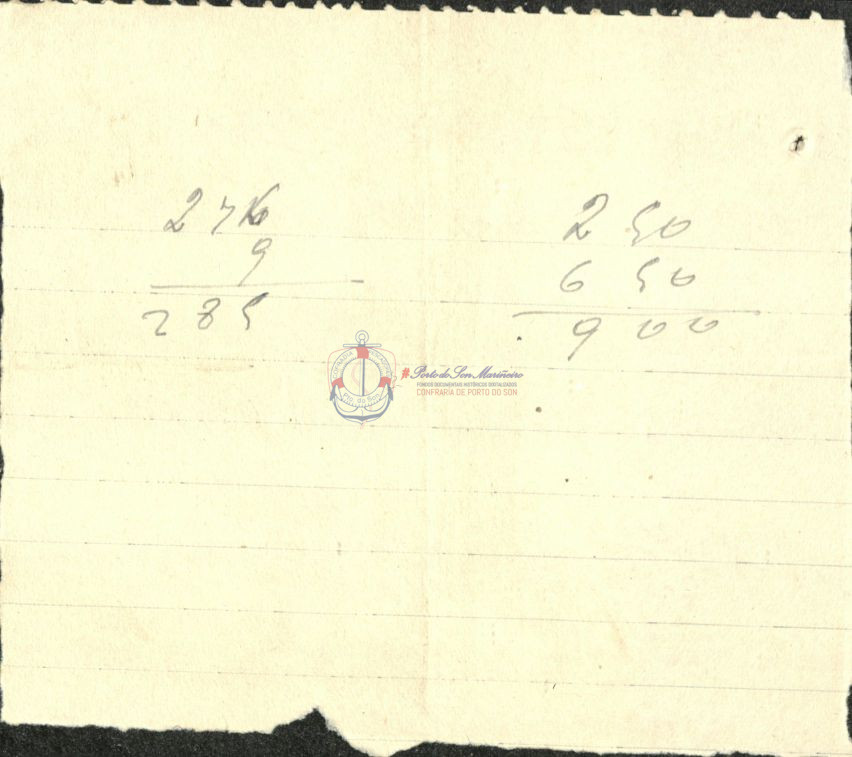 276
9
285
250
650
900
Porto do Son Mariñeiro
FONDOS DOCUMENTAIS HISTÓRICOS DIXITALIZADOS
CONFRARÍA DE PORTO DO SON
Pto. do Son